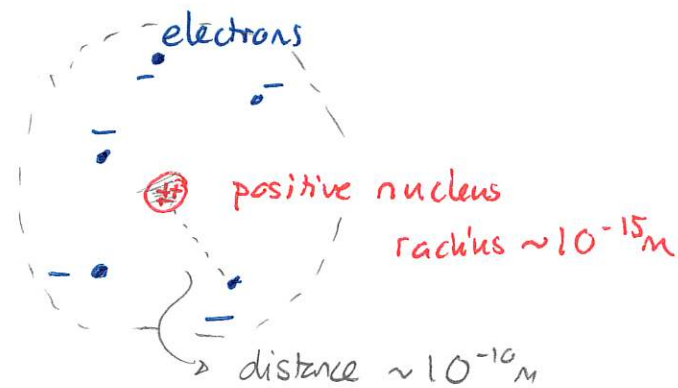 electrons
positive nucleus
radius ~10⁻¹⁵m
distance ~10⁻¹⁰m